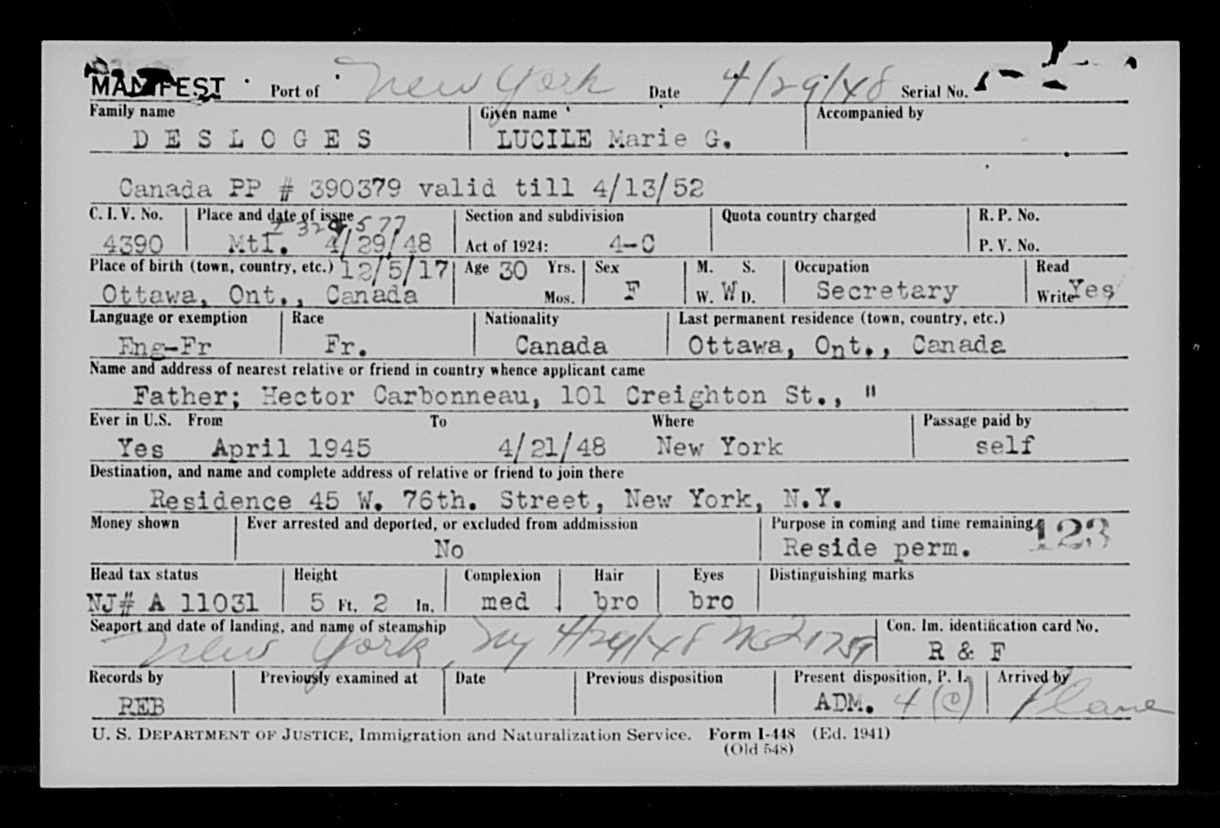 MANIFEST Port of New York Date 4/29/48 Serial No.
Family name Given name Accompanied by
DESLOGES LUCILE Marie G.
Canada PP # 390379 valid till 4/13/52
C. I. V. No. Place and date of issue Section and subdivision Quota country charged R. P. No.
4390 Mtl. 4/29/48 Act of 1924: 4-C P. V. No.
Place of birth (town, country, etc.) 12/5/17 Age 30 Yrs. Sex M. S. Occupation Read
Ottawa, Ont., Canada Mos. F W. W D. Secretary Write Yes
Language or exemption Race Nationality Last permanent residence (town, country, etc.)
Eng-Fr Fr. Canada Ottawa, Ont., Canada
Name and address of nearest relative or friend in country whence applicant came
Father; Hector Carbonneau, 101 Creighton St., "
Ever in U.S. From To Where Passage paid by
Yes April 1945 4/21/48 New York self
Destination, and name and complete address of relative or friend to join there
Residence 45 W. 76th. Street, New York, N.Y.
Money shown Ever arrested and deported, or excluded from addmission Purpose in coming and time remaining
No Reside perm. 123
Head tax status Height Complexion Hair Eyes Distinguishing marks
NJ# A 11031 5 Ft. 2 In. med bro bro
Seaport and date of landing, and name of steamship Con. Im. identification card No.
New York, NY 4/29/48 R & F
Records by Previously examined at Date Previous disposition Present disposition, P. I. Arrived by
REB ADM. 4 (c) Plane
U. S. DEPARTMENT OF JUSTICE, Immigration and Naturalization Service. Form I-448 (Ed. 1941)
(Old 548)